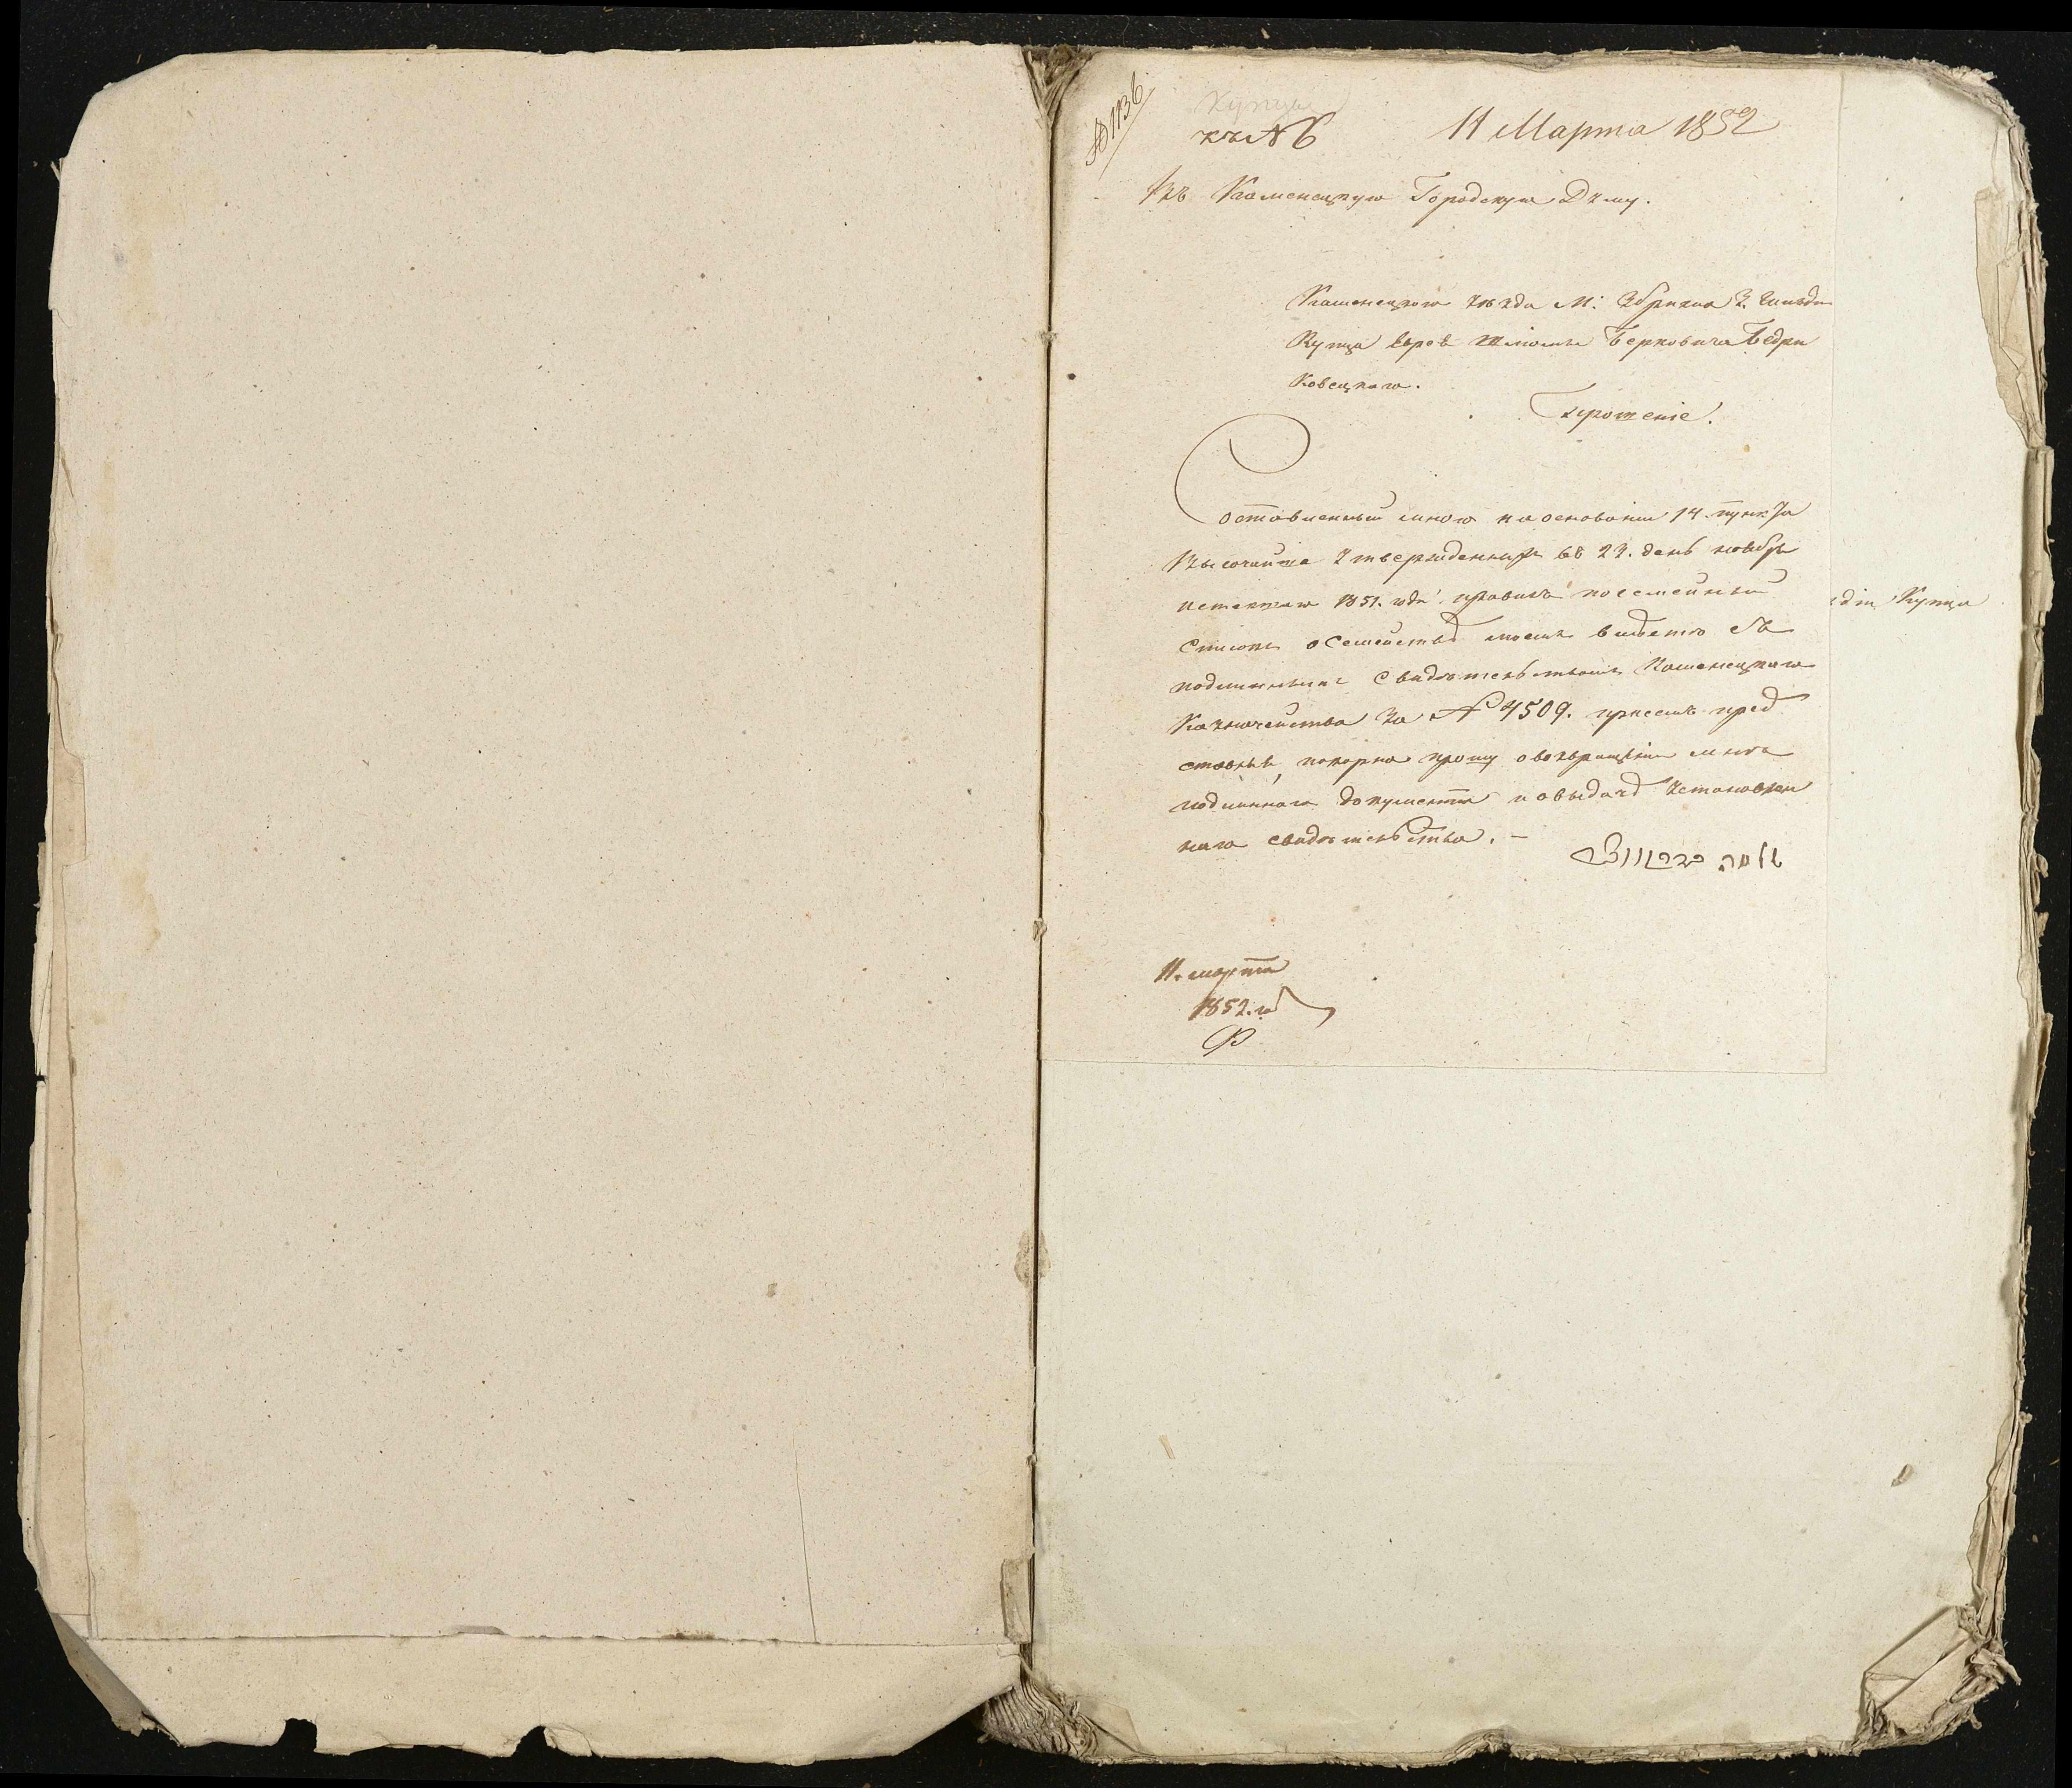 № 1136
Купцы
къ № 6
11 Марта 1852
Въ Каменецкую Городскую Думу.
Каменецкого уѣзда М: Збрижа 3. Гильдіи
Купца еврея Шліомы Берковича Бедри
ковецкаго.
Прошеніе.
Составленный мною на основаніи 14. пункта
Высочайше утвержденныхъ въ 23. день ноября
истекшаго 1851. года правилъ посемейный
Списокъ о Семействѣ моемъ вмѣстѣ съ
подлиннымъ Свидѣтельствомъ Каменецкаго
Казначейства за № 4509. присемъ пред
ставляя, покорно прошу о возвращеніи мнѣ
подлиннаго документа и о выдачѣ установлен
наго свидѣтельства. —
שלמה
11. марта
1852. го
діи Купца